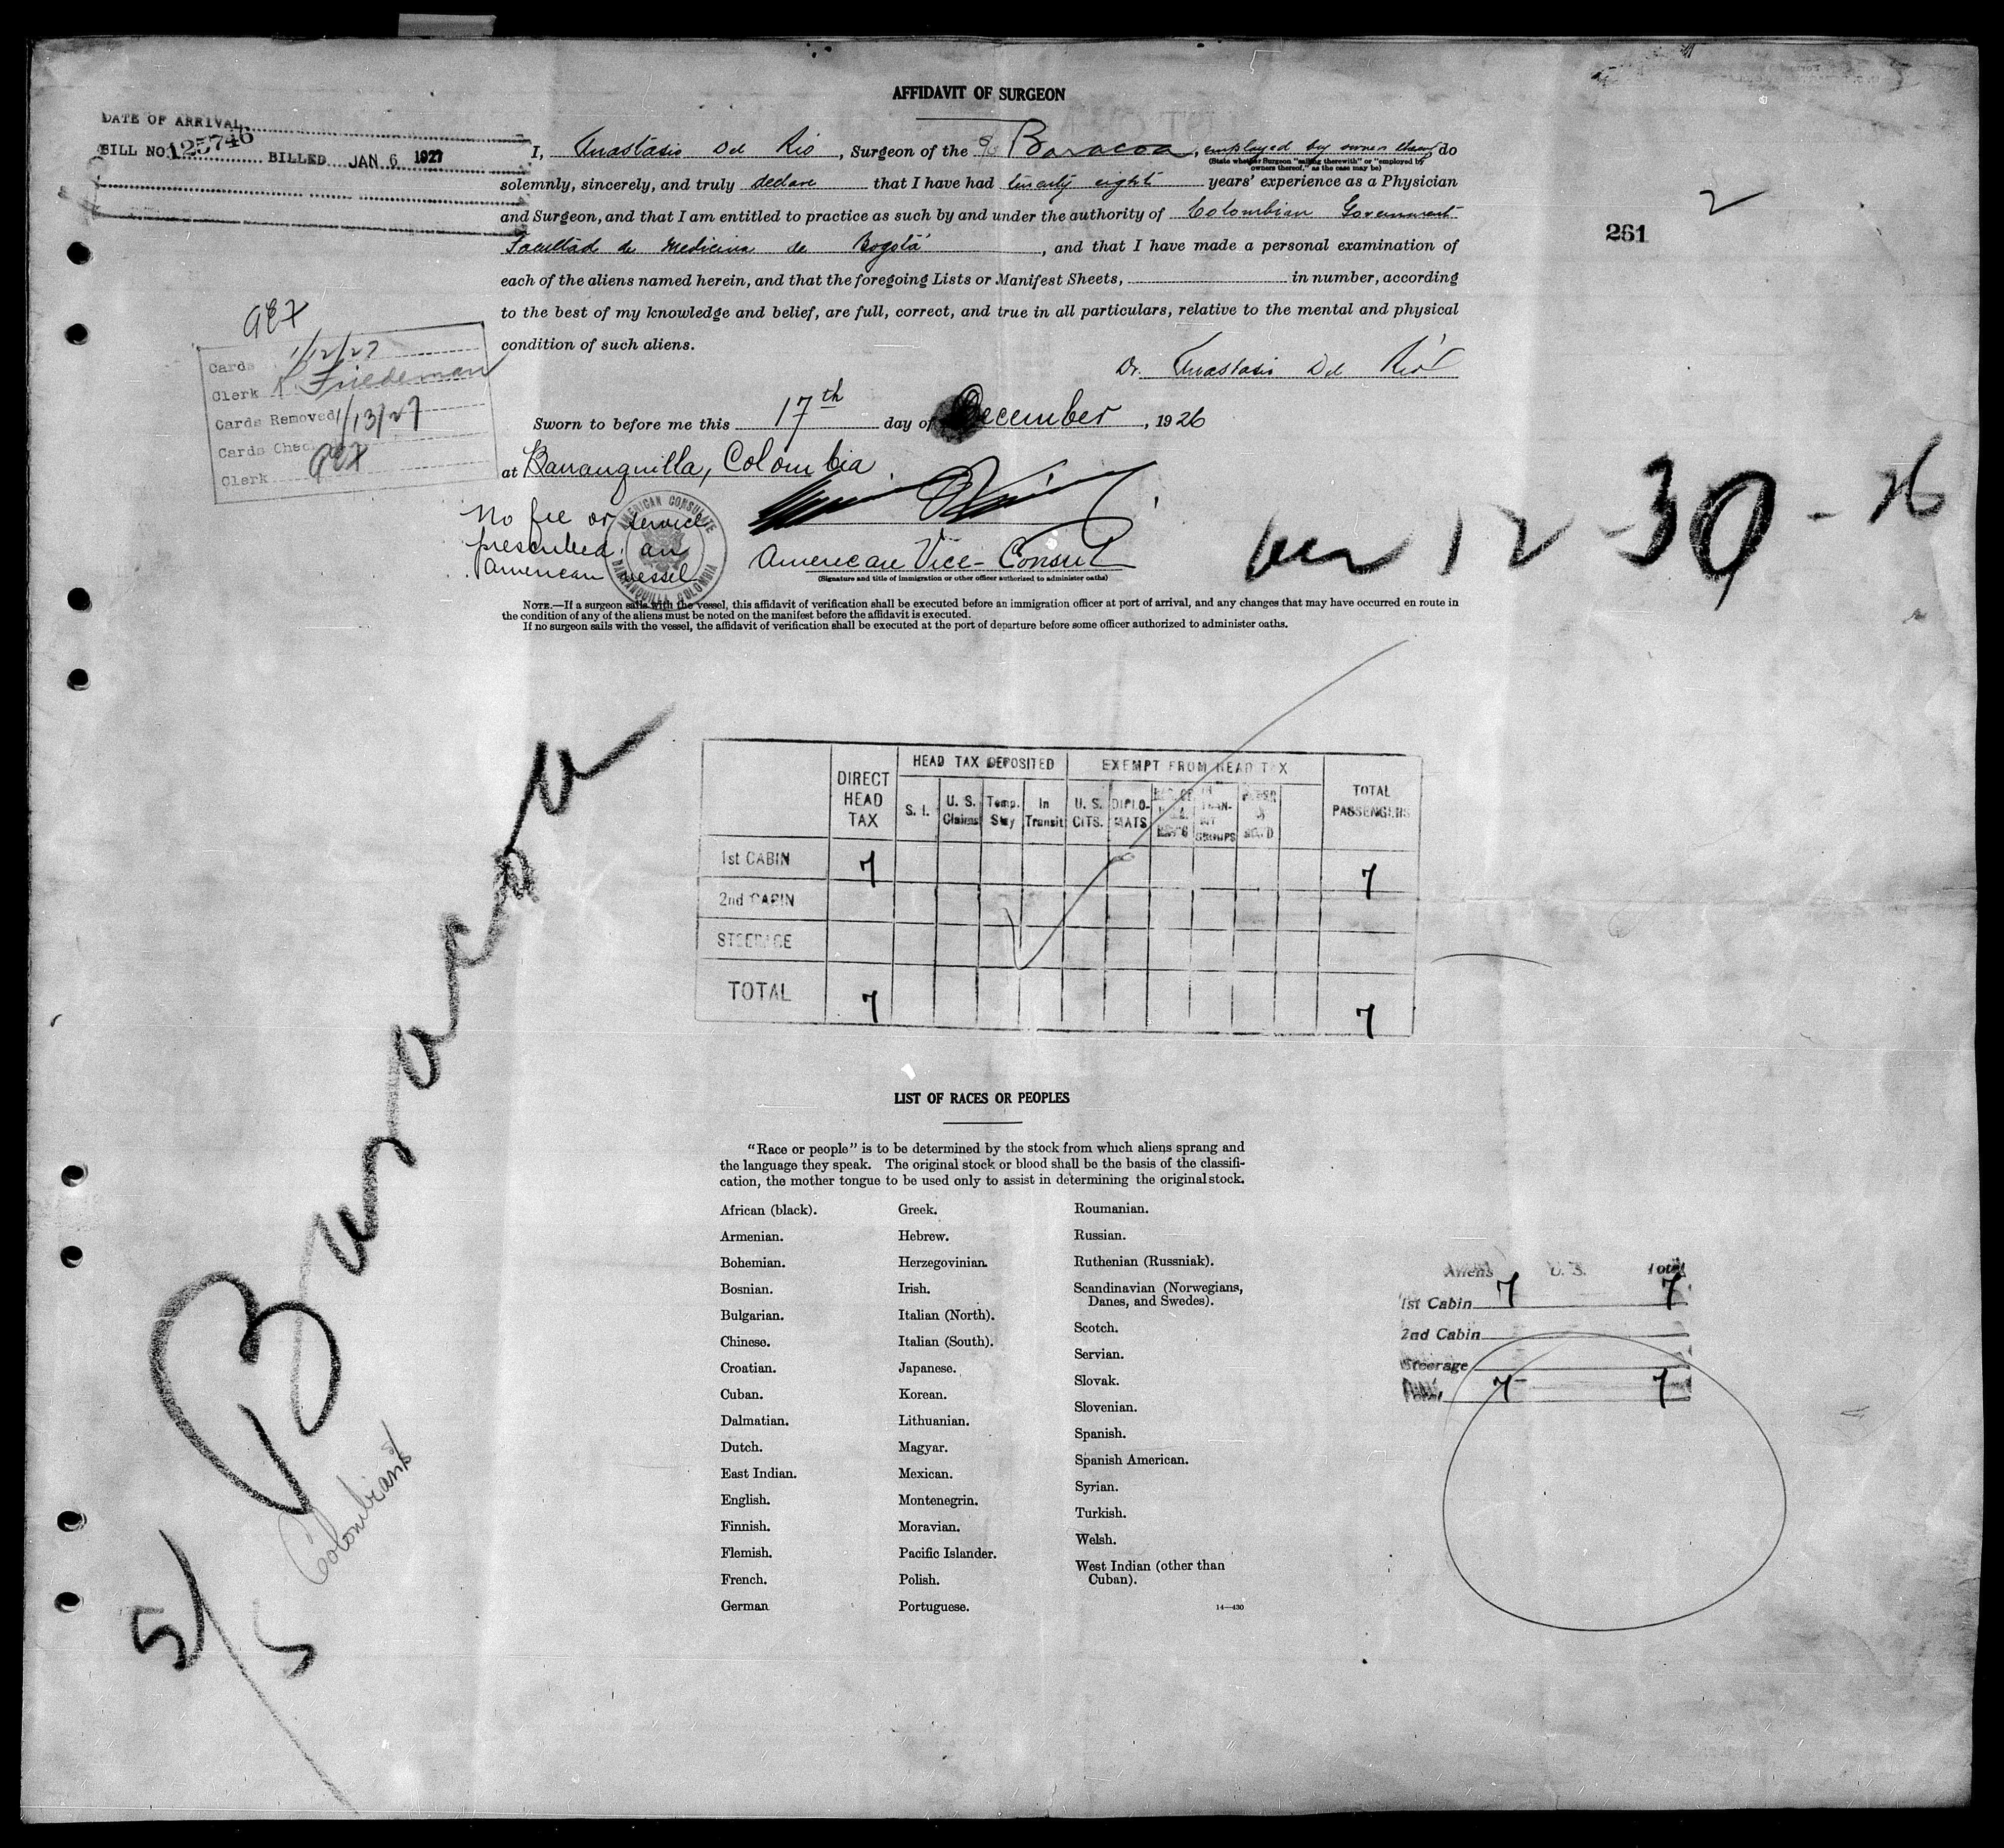 AFFIDAVIT OF SURGEON
DATE OF ARRIVAL
BILL NO. 125746 BILLED JAN 6 1927
I, Anastasio Del Rio, Surgeon of the SS Baracoa, employed by owner thereof, do
(State whether Surgeon "sailing therewith" or "employed by owners thereof," as the case may be)
solemnly, sincerely, and truly declare that I have had twenty eight years' experience as a Physician
and Surgeon, and that I am entitled to practice as such by and under the authority of Colombian Government
Facultad de Medicina de Bogotá, and that I have made a personal examination of
each of the aliens named herein, and that the foregoing Lists or Manifest Sheets, in number, according
to the best of my knowledge and belief, are full, correct, and true in all particulars, relative to the mental and physical
condition of such aliens.
Dr. Anastasio Del Rio
2
261
Cards 1/12/27
Clerk K. Friedeman
Cards Removed 1/13/27
Cards Chec
Clerk
Sworn to before me this 17th day of December, 1926
at Barranquilla, Colombia.
No fee or service
prescribed. an
American vessel
AMERICAN CONSULATE
BARRANQUILLA, COLOMBIA
American Vice-Consul
(Signature and title of immigration or other officer authorized to administer oaths)
12-30-26
NOTE.—If a surgeon sails with the vessel, this affidavit of verification shall be executed before an immigration officer at port of arrival, and any changes that may have occurred en route in
the condition of any of the aliens must be noted on the manifest before the affidavit is executed.
If no surgeon sails with the vessel, the affidavit of verification shall be executed at the port of departure before some officer authorized to administer oaths.
DIRECT HEAD TAX
HEAD TAX DEPOSITED
EXEMPT FROM HEAD TAX
TOTAL PASSENGERS
S. I.
U. S. Claims
Temp. Stay
In Transit
U. S. CITS.
DIPLOMATS
GROUPS
1st CABIN 7 7
2nd CABIN
STEERAGE
TOTAL 7 7
Baracoa
Colombians
5/5
LIST OF RACES OR PEOPLES
"Race or people" is to be determined by the stock from which aliens sprang and
the language they speak. The original stock or blood shall be the basis of the classifi-
cation, the mother tongue to be used only to assist in determining the original stock.
African (black).
Armenian.
Bohemian.
Bosnian.
Bulgarian.
Chinese.
Croatian.
Cuban.
Dalmatian.
Dutch.
East Indian.
English.
Finnish.
Flemish.
French.
German
Greek.
Hebrew.
Herzegovinian.
Irish.
Italian (North).
Italian (South).
Japanese.
Korean.
Lithuanian.
Magyar.
Mexican.
Montenegrin.
Moravian.
Pacific Islander.
Polish.
Portuguese.
Roumanian.
Russian.
Ruthenian (Russniak).
Scandinavian (Norwegians,
Danes, and Swedes).
Scotch.
Servian.
Slovak.
Slovenian.
Spanish.
Spanish American.
Syrian.
Turkish.
Welsh.
West Indian (other than
Cuban).
14—430
Aliens U. S. Total
1st Cabin 7 7
2nd Cabin
Steerage
Total 7 7